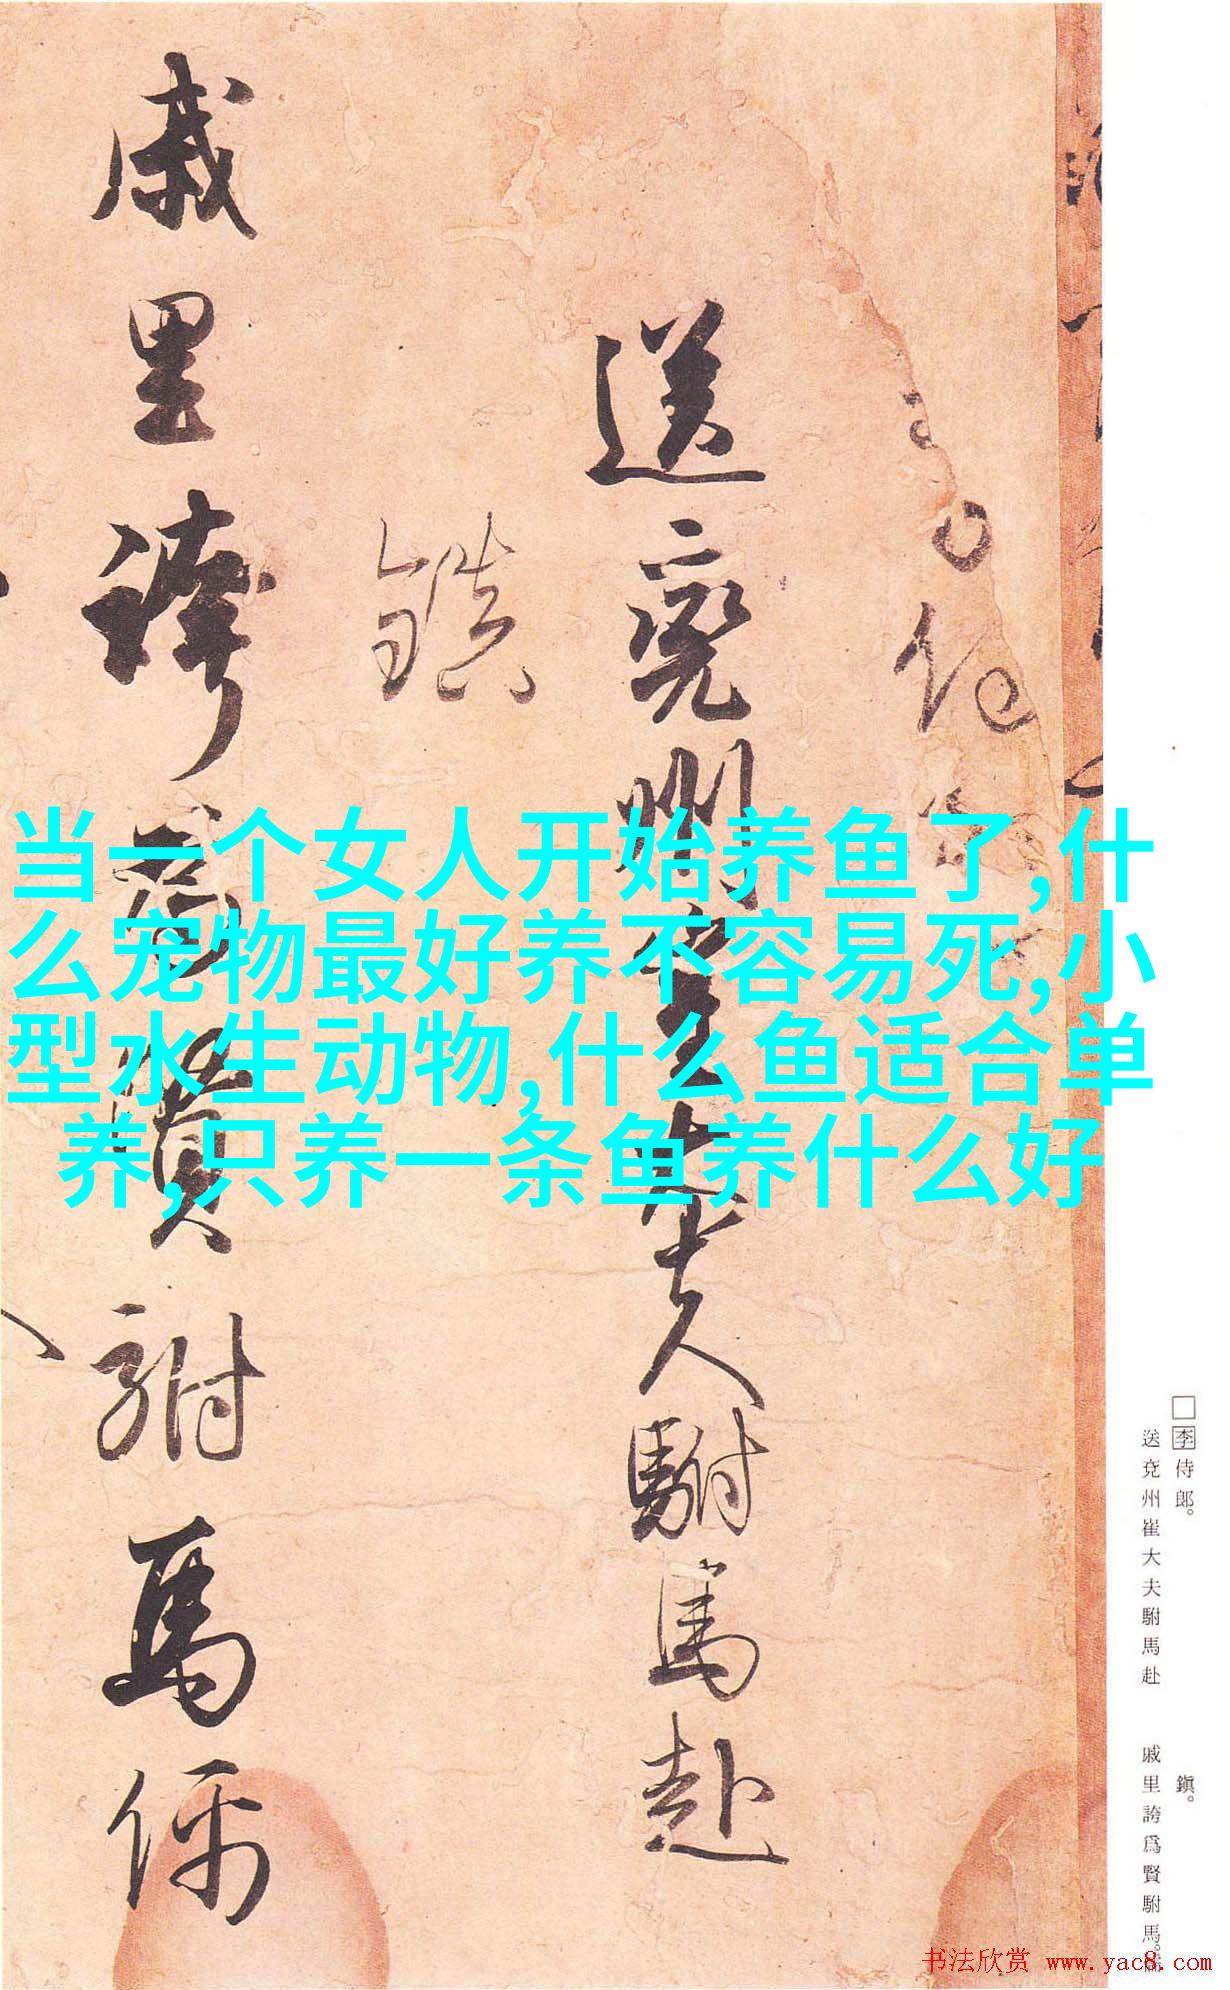 当一个女人开始养鱼了,什
么宠物最好养不容易死,小
型水生动物,什么鱼适合单
养,只养一条鱼养什么好
送兖州崔大夫駙馬赴
鎮
戚里誇為賢駙馬
□李侍郎。
送兗州崔大夫駙馬赴
鎭。
戚里誇爲賢駙馬。
书法欣赏 www.yac8.com